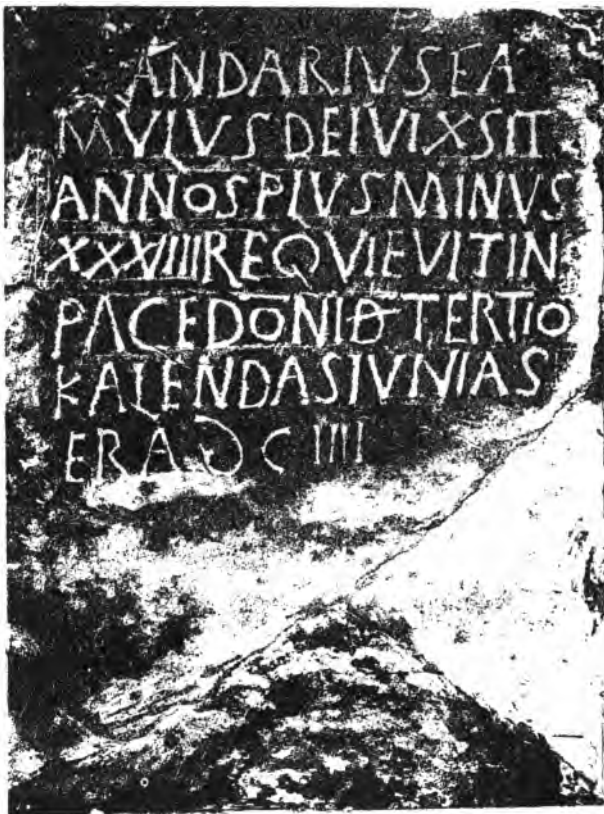 ANDARIVS FA
MVLVS DEI VIXSIT
ANNOS PLVS MINVS
XXXVIIII REQVIEVIT IN
PACE DONI Đ TERTIO
KALENDAS IVNIAS
ERA DC IIII